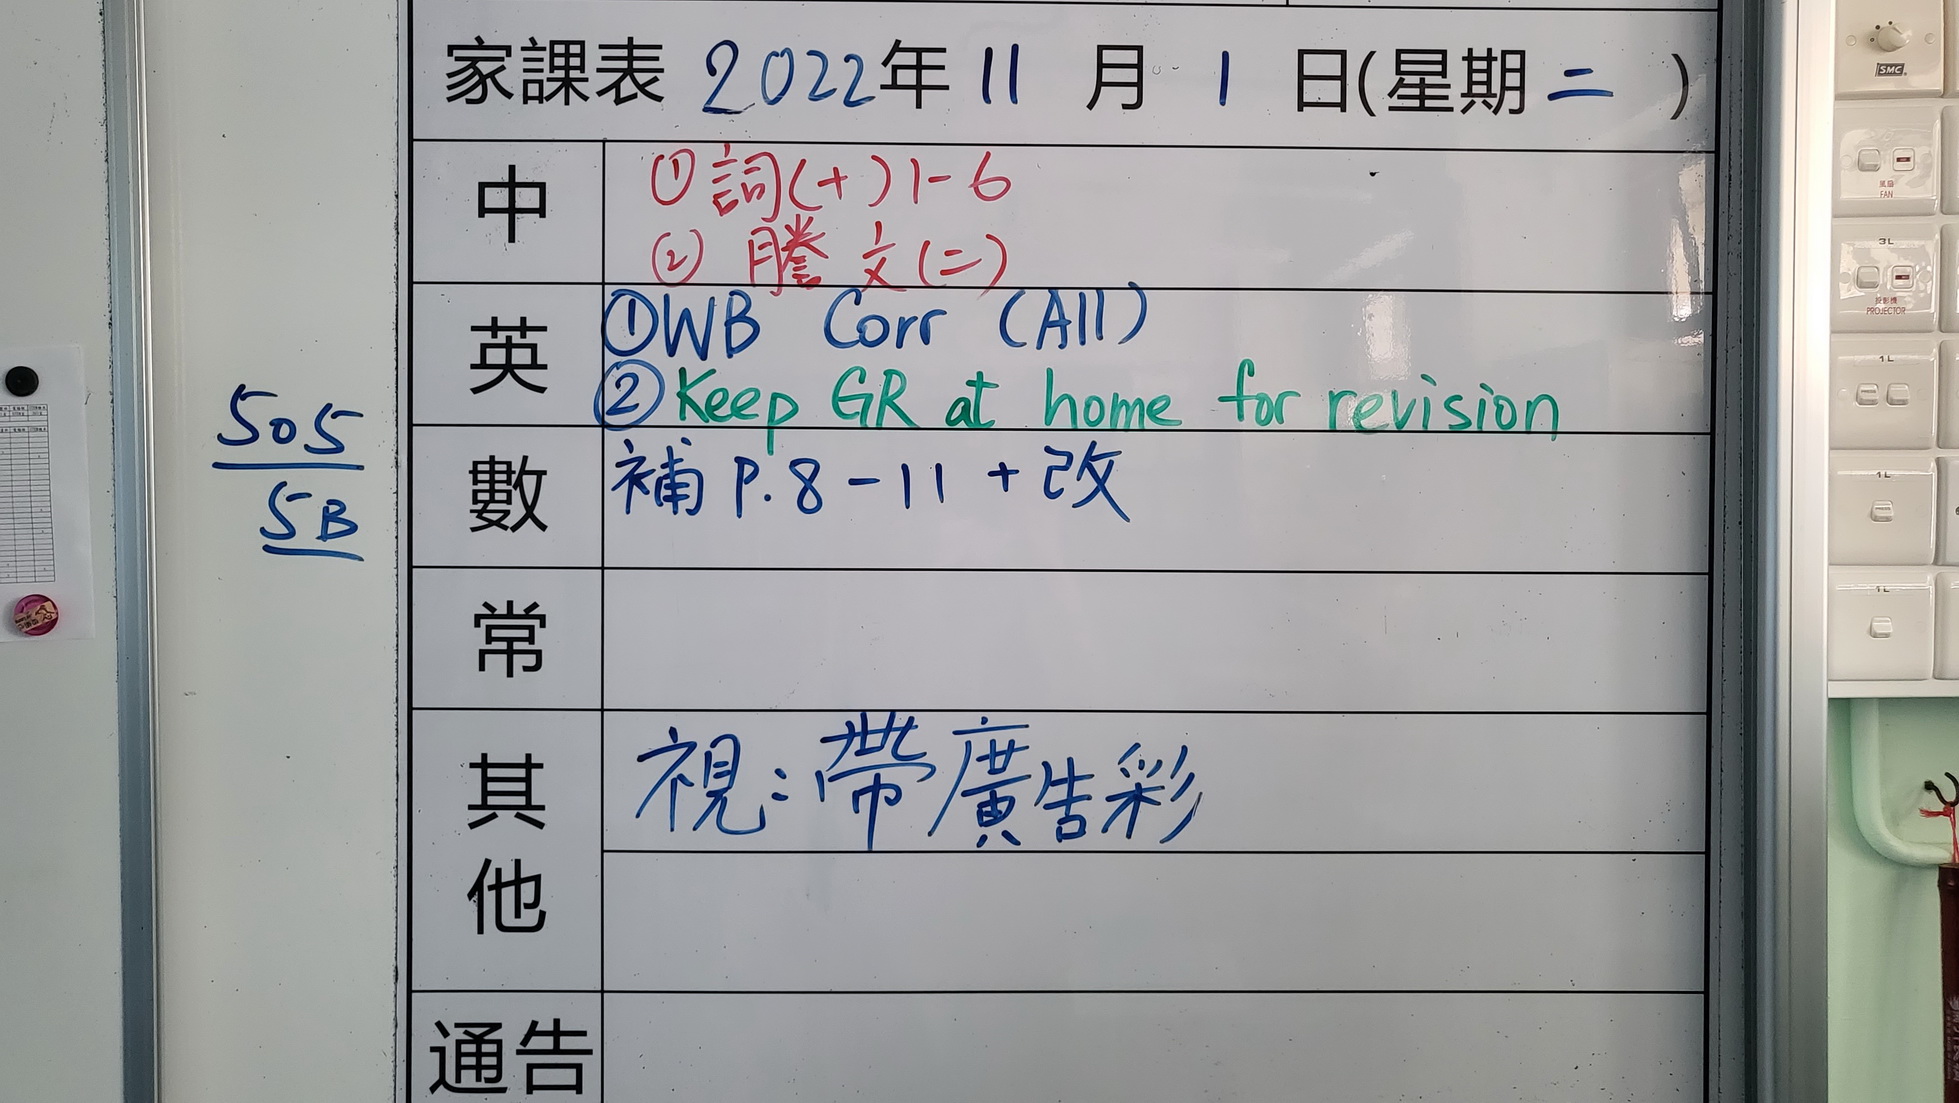 家課表 2022年 11 月 1 日(星期二)
中
①詞(十)1-6
② 謄文(二)
英
①WB Corr (All)
②Keep GR at home for revision
數
補 P.8-11 + 改
常
其他
視:帶廣告彩
通告
505
5B
SMC
風扇
FAN
3L
投影機
PROJECTOR
1L
1L
1L